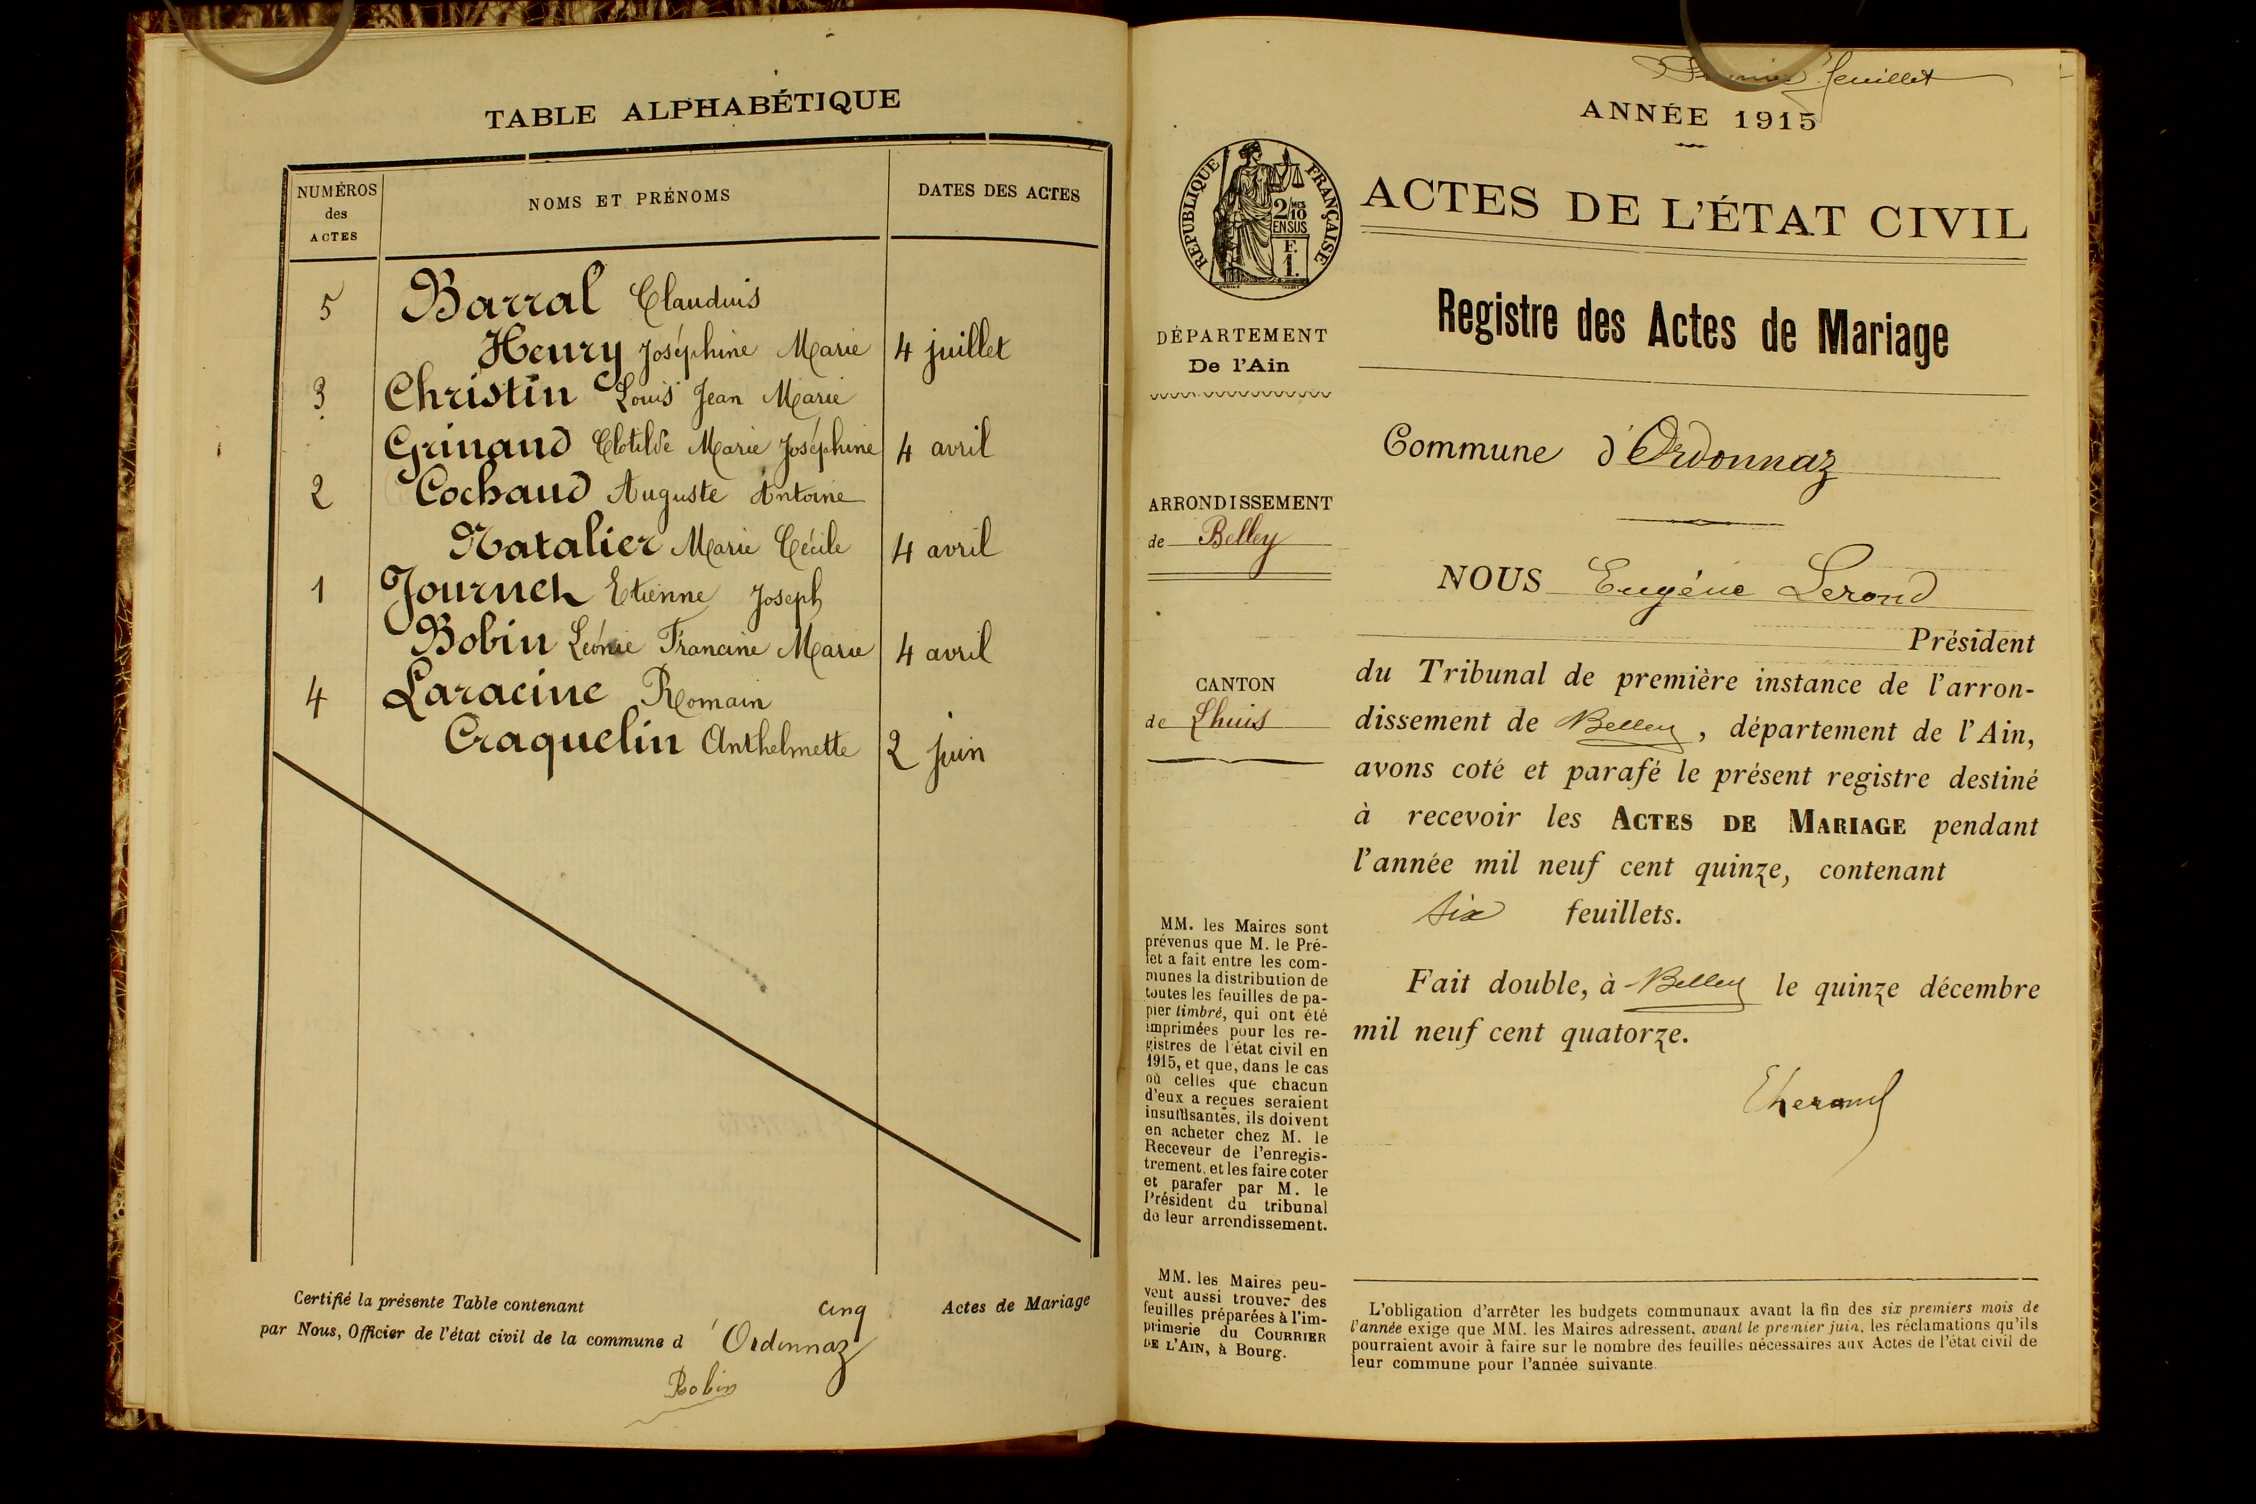 TABLE ALPHABÉTIQUE
NUMÉROS des ACTES
NOMS ET PRÉNOMS
DATES DES ACTES
5 Barral Claudius
Henry Joséphine Marie 4 juillet
3 Christin Louis Jean Marie
Grinand Clotilde Marie Joséphine 4 avril
2 Cochaud Auguste Antoine
Natalier Marie Cécile 4 avril
1 Journet Etienne Joseph
Bobin Léonie Francine Marie 4 avril
4 Laracine Romain
Craquelin Anthelmette 2 juin
Certifié la présente Table contenant cinq Actes de Mariage
par Nous, Officier de l'état civil de la commune d'Ordonnaz
Bobin
Premier feuillet
ANNÉE 1915
RÉPUBLIQUE FRANÇAISE
2/10 MES
EN SUS
F.
1.
ACTES DE L'ÉTAT CIVIL
Registre des Actes de Mariage
DÉPARTEMENT
De l'Ain
Commune d'Ordonnaz
ARRONDISSEMENT
de Belley
CANTON
de Lhuis
NOUS Eugène Lerond
Président
du Tribunal de première instance de l'arron-
dissement de Belley, département de l'Ain,
avons coté et parafé le présent registre destiné
à recevoir les ACTES DE MARIAGE pendant
l'année mil neuf cent quinze, contenant
six feuillets.
Fait double, à Belley le quinze décembre
mil neuf cent quatorze.
ELerond
MM. les Maires sont
prévenus que M. le Pré-
fet a fait entre les com-
munes la distribution de
toutes les feuilles de pa-
pier timbré, qui ont été
imprimées pour les re-
gistres de l'état civil en
1915, et que, dans le cas
où celles que chacun
d'eux a reçues seraient
insuffisantes, ils doivent
en acheter chez M. le
Receveur de l'enregis-
trement, et les faire coter
et parafer par M. le
Président du tribunal
de leur arrondissement.
MM. les Maires peu-
vent aussi trouver des
feuilles préparées à l'im-
primerie du COURRIER
DE L'AIN, à Bourg.
L'obligation d'arrêter les budgets communaux avant la fin des six premiers mois de
l'année exige que MM. les Maires adressent, avant le premier juin, les réclamations qu'ils
pourraient avoir à faire sur le nombre des feuilles nécessaires aux Actes de l'état civil de
leur commune pour l'année suivante.